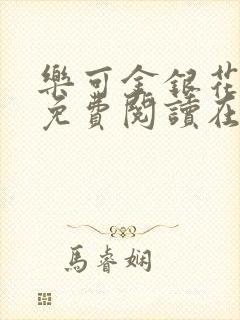 樂可金銀花
免費閱讀在
馬睿嫻